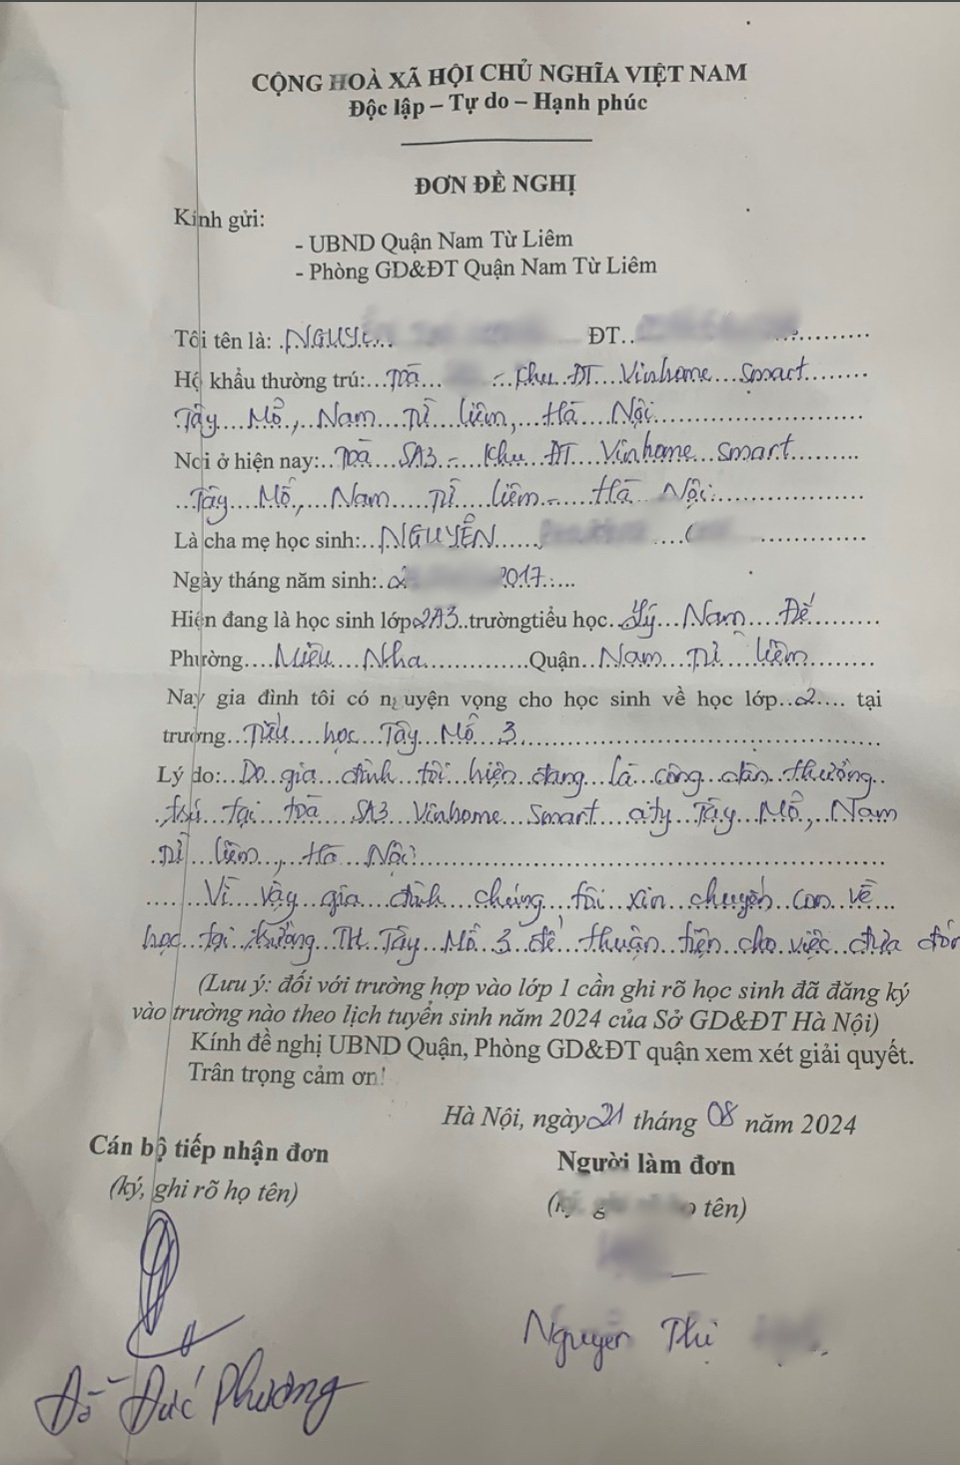 CỘNG HOÀ XÃ HỘI CHỦ NGHĨA VIỆT NAM
Độc lập – Tự do – Hạnh phúc
ĐƠN ĐỀ NGHỊ
Kính gửi:
- UBND Quận Nam Từ Liêm
- Phòng GD&ĐT Quận Nam Từ Liêm
Tôi tên là: NGUY ĐT
Hộ khẩu thường trú: Toà - Khu ĐT Vinhome Smart
Tây Mỗ, Nam Từ Liêm, Hà Nội
Nơi ở hiện nay: Toà SA3 - Khu ĐT Vinhome Smart
Tây Mỗ, Nam Từ Liêm - Hà Nội
Là cha mẹ học sinh: NGUYỄN
Ngày tháng năm sinh: 2 2017
Hiện đang là học sinh lớp 2A3 trường tiểu học Lý Nam Đế
Phường Miêu Nha Quận Nam Từ Liêm
Nay gia đình tôi có nguyện vọng cho học sinh về học lớp 2 tại
trường Tiểu học Tây Mỗ 3
Lý do: Do gia đình tôi hiện đang là công dân thường
trú tại toà SA3 Vinhome Smart city Tây Mỗ, Nam
Từ Liêm, Hà Nội
Vì vậy gia đình chúng tôi xin chuyển con về
học tại trường TH Tây Mỗ 3 để thuận tiện cho việc đưa đón
(Lưu ý: đối với trường hợp vào lớp 1 cần ghi rõ học sinh đã đăng ký
vào trường nào theo lịch tuyển sinh năm 2024 của Sở GD&ĐT Hà Nội)
Kính đề nghị UBND Quận, Phòng GD&ĐT quận xem xét giải quyết.
Trân trọng cảm ơn!
Hà Nội, ngày 21 tháng 08 năm 2024
Cán bộ tiếp nhận đơn
(ký, ghi rõ họ tên)
Người làm đơn
(ký, tên)
Nguyễn Thị
Đỗ Đức Phương